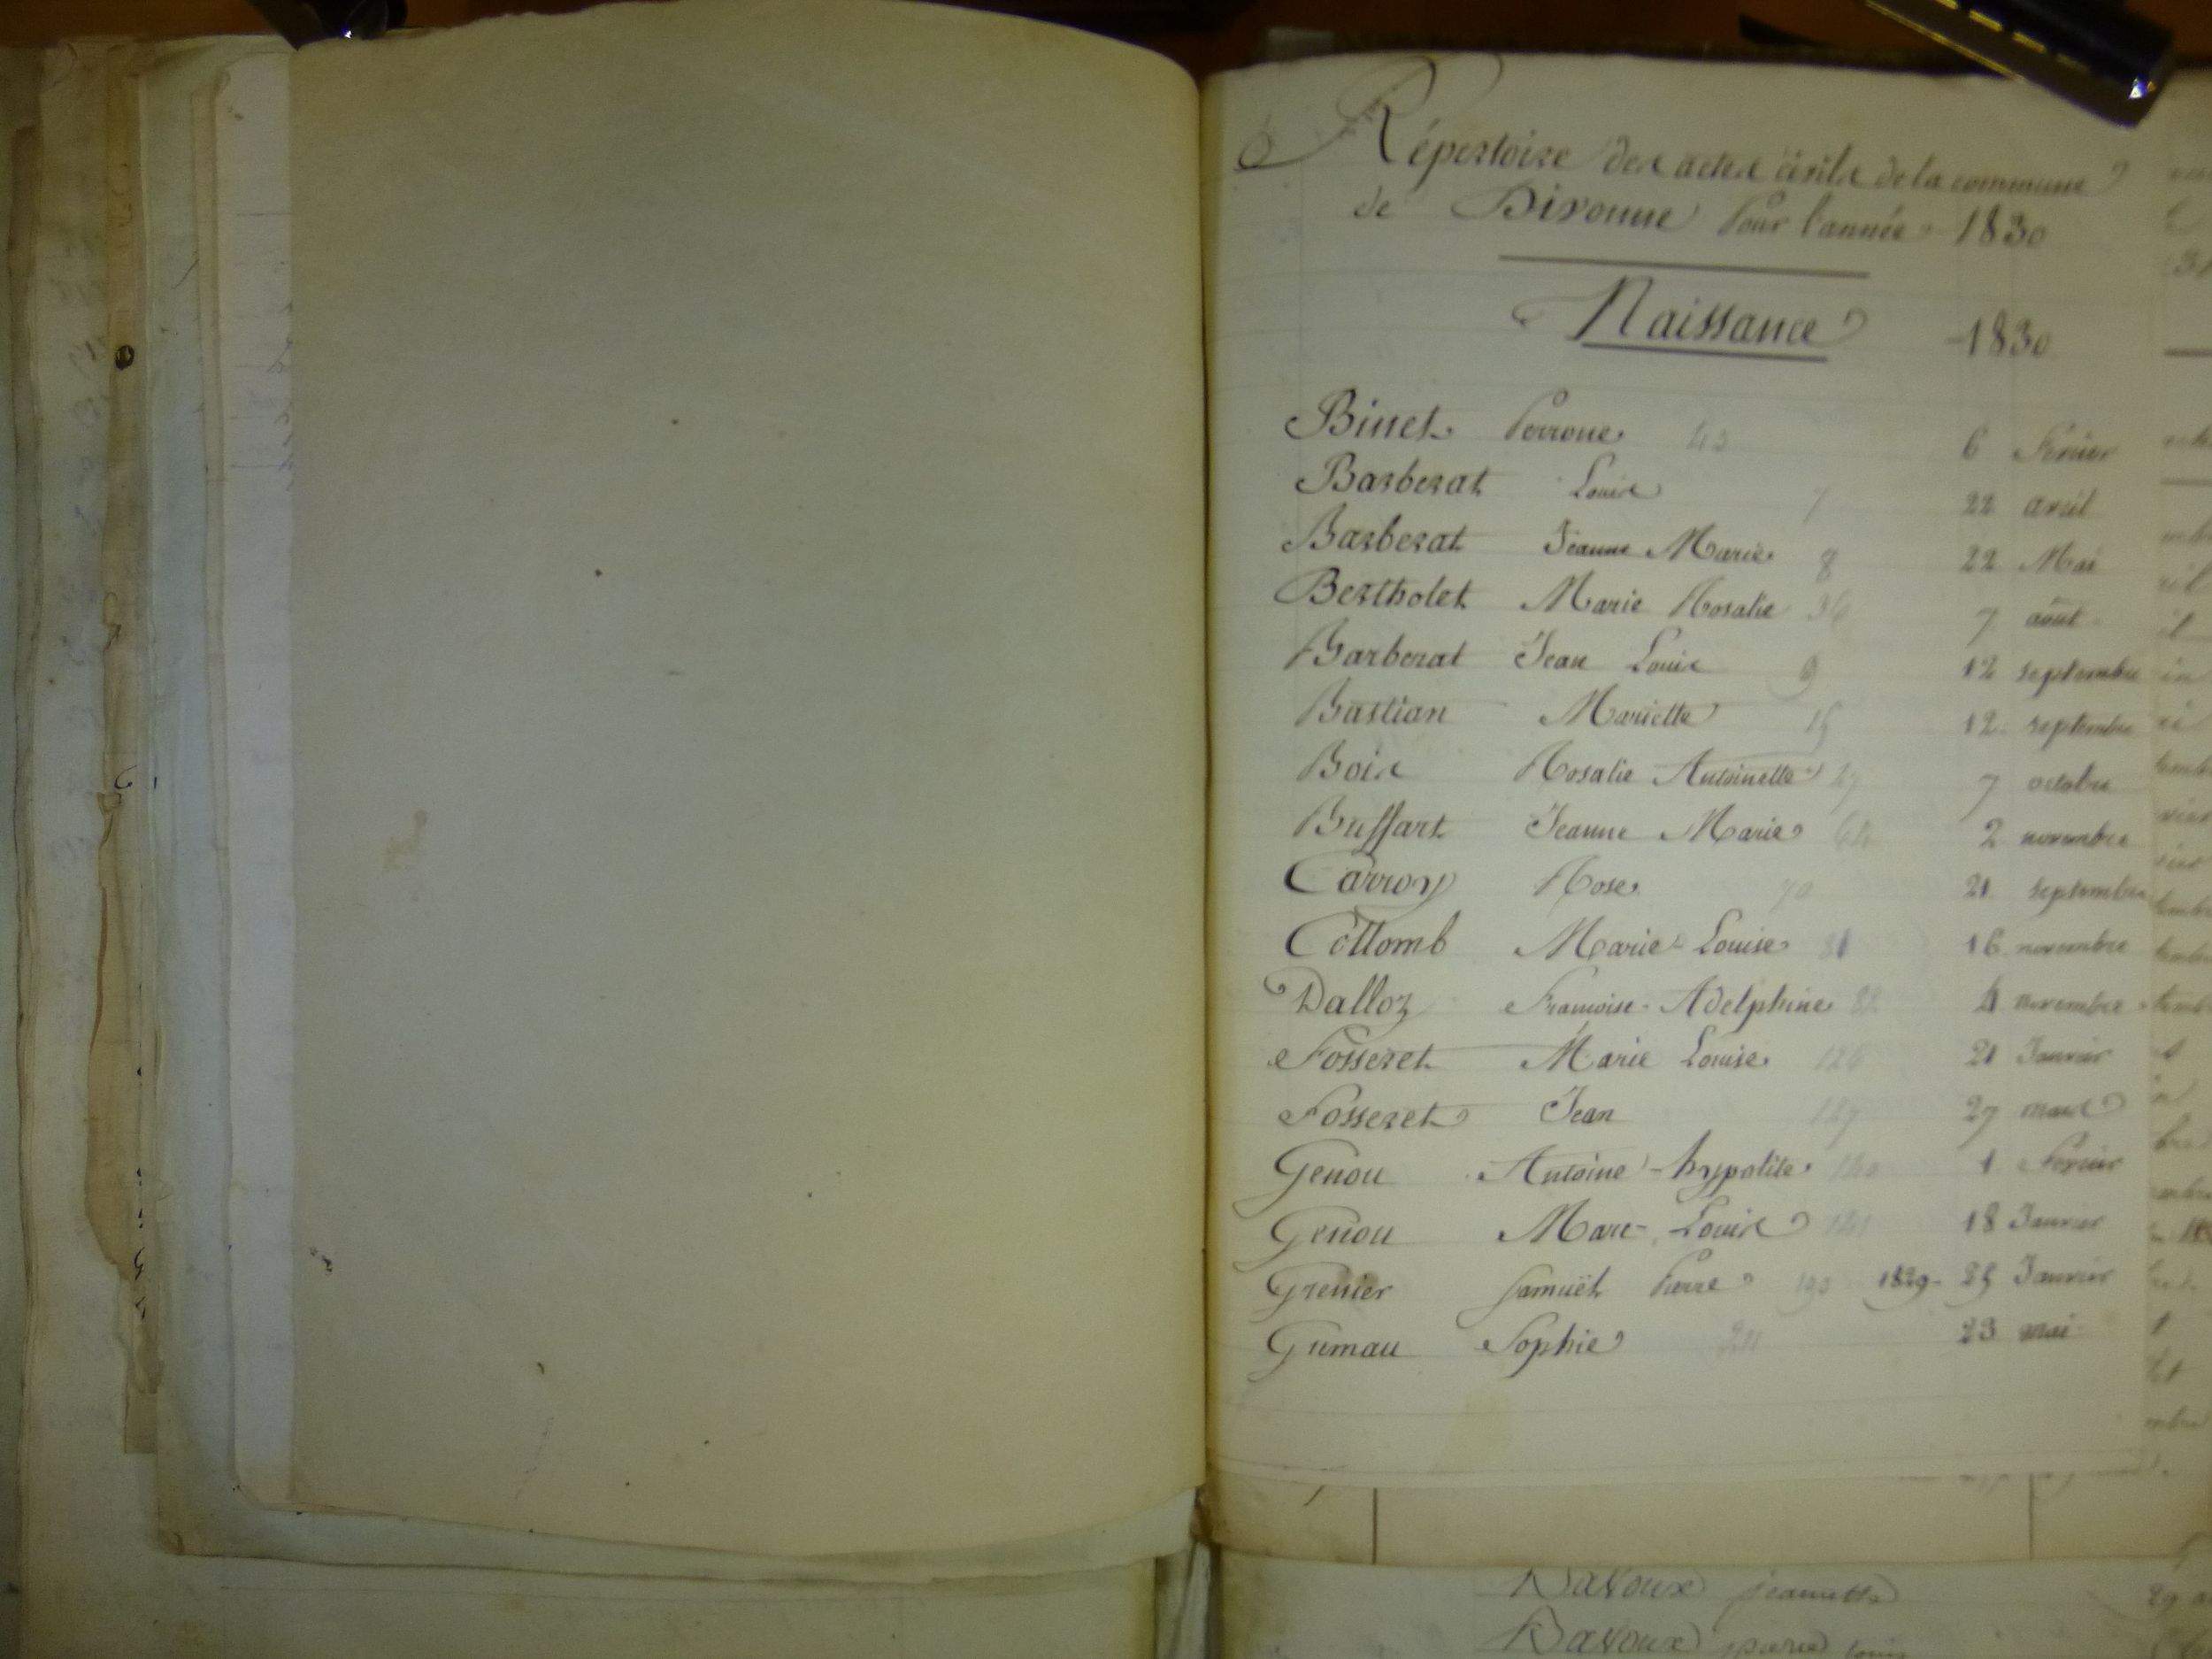 Répertoire des actes civils de la commune
de Divonne Pour l'année 1830
Naissance 1830
Binet Perrone 43 6 Février
Barberat Louis 7 22 avril
Barberat Jeanne Marie 8 22 Mai
Bertholet Marie Rosalie 36 7 août
Barberat Jean Louis 9 12 septembre
Bastian Mariette 15 12 septembre
Bois Rosalie Antoinette 7 octobre
Buffart Jeanne Marie 64 2 novembre
Carroy Rose 70 21 septembre
Collomb Marie Louise 81 16 novembre
Dalloz Francoise Adelphine 4 novembre
Fosseret Marie Louise 126 21 Janvier
Fosseret Jean 127 27 mars
Genou Antoine hypolite 1 Février
Genou Marc Louis 18 Janvier
Grenier Samuël Pierre 1829 25 Janvier
Gumau Sophie 23 mai
Davoux jeannette
Davoux pierre louis